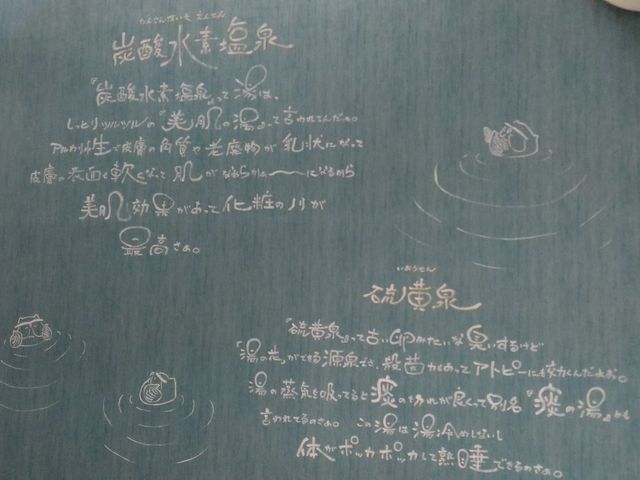 たんさんすいそえんせん
炭酸水素塩泉
『炭酸水素塩泉』って湯は、
しっとりツルツルの『美肌の湯』って言われてんだぁ。
アルカリ性で皮膚の角質や老廃物が乳状になって
皮膚の表面も軟くなって肌がなめらか〜になるから
美肌効果があって化粧のノリが
最高さぁ。
いおうせん
硫黄泉
『硫黄泉』って古い卵みたいな臭いするけど
「湯の花」ができる源泉でさ、殺菌力あってアトピーにも効くんだよお。
湯の蒸気を吸ってると痰の切れが良くって別名『痰の湯』とも
言われてるのさぁ。 この湯は湯冷めしないし
体がポッカポッカして熟睡できるのさぁ。